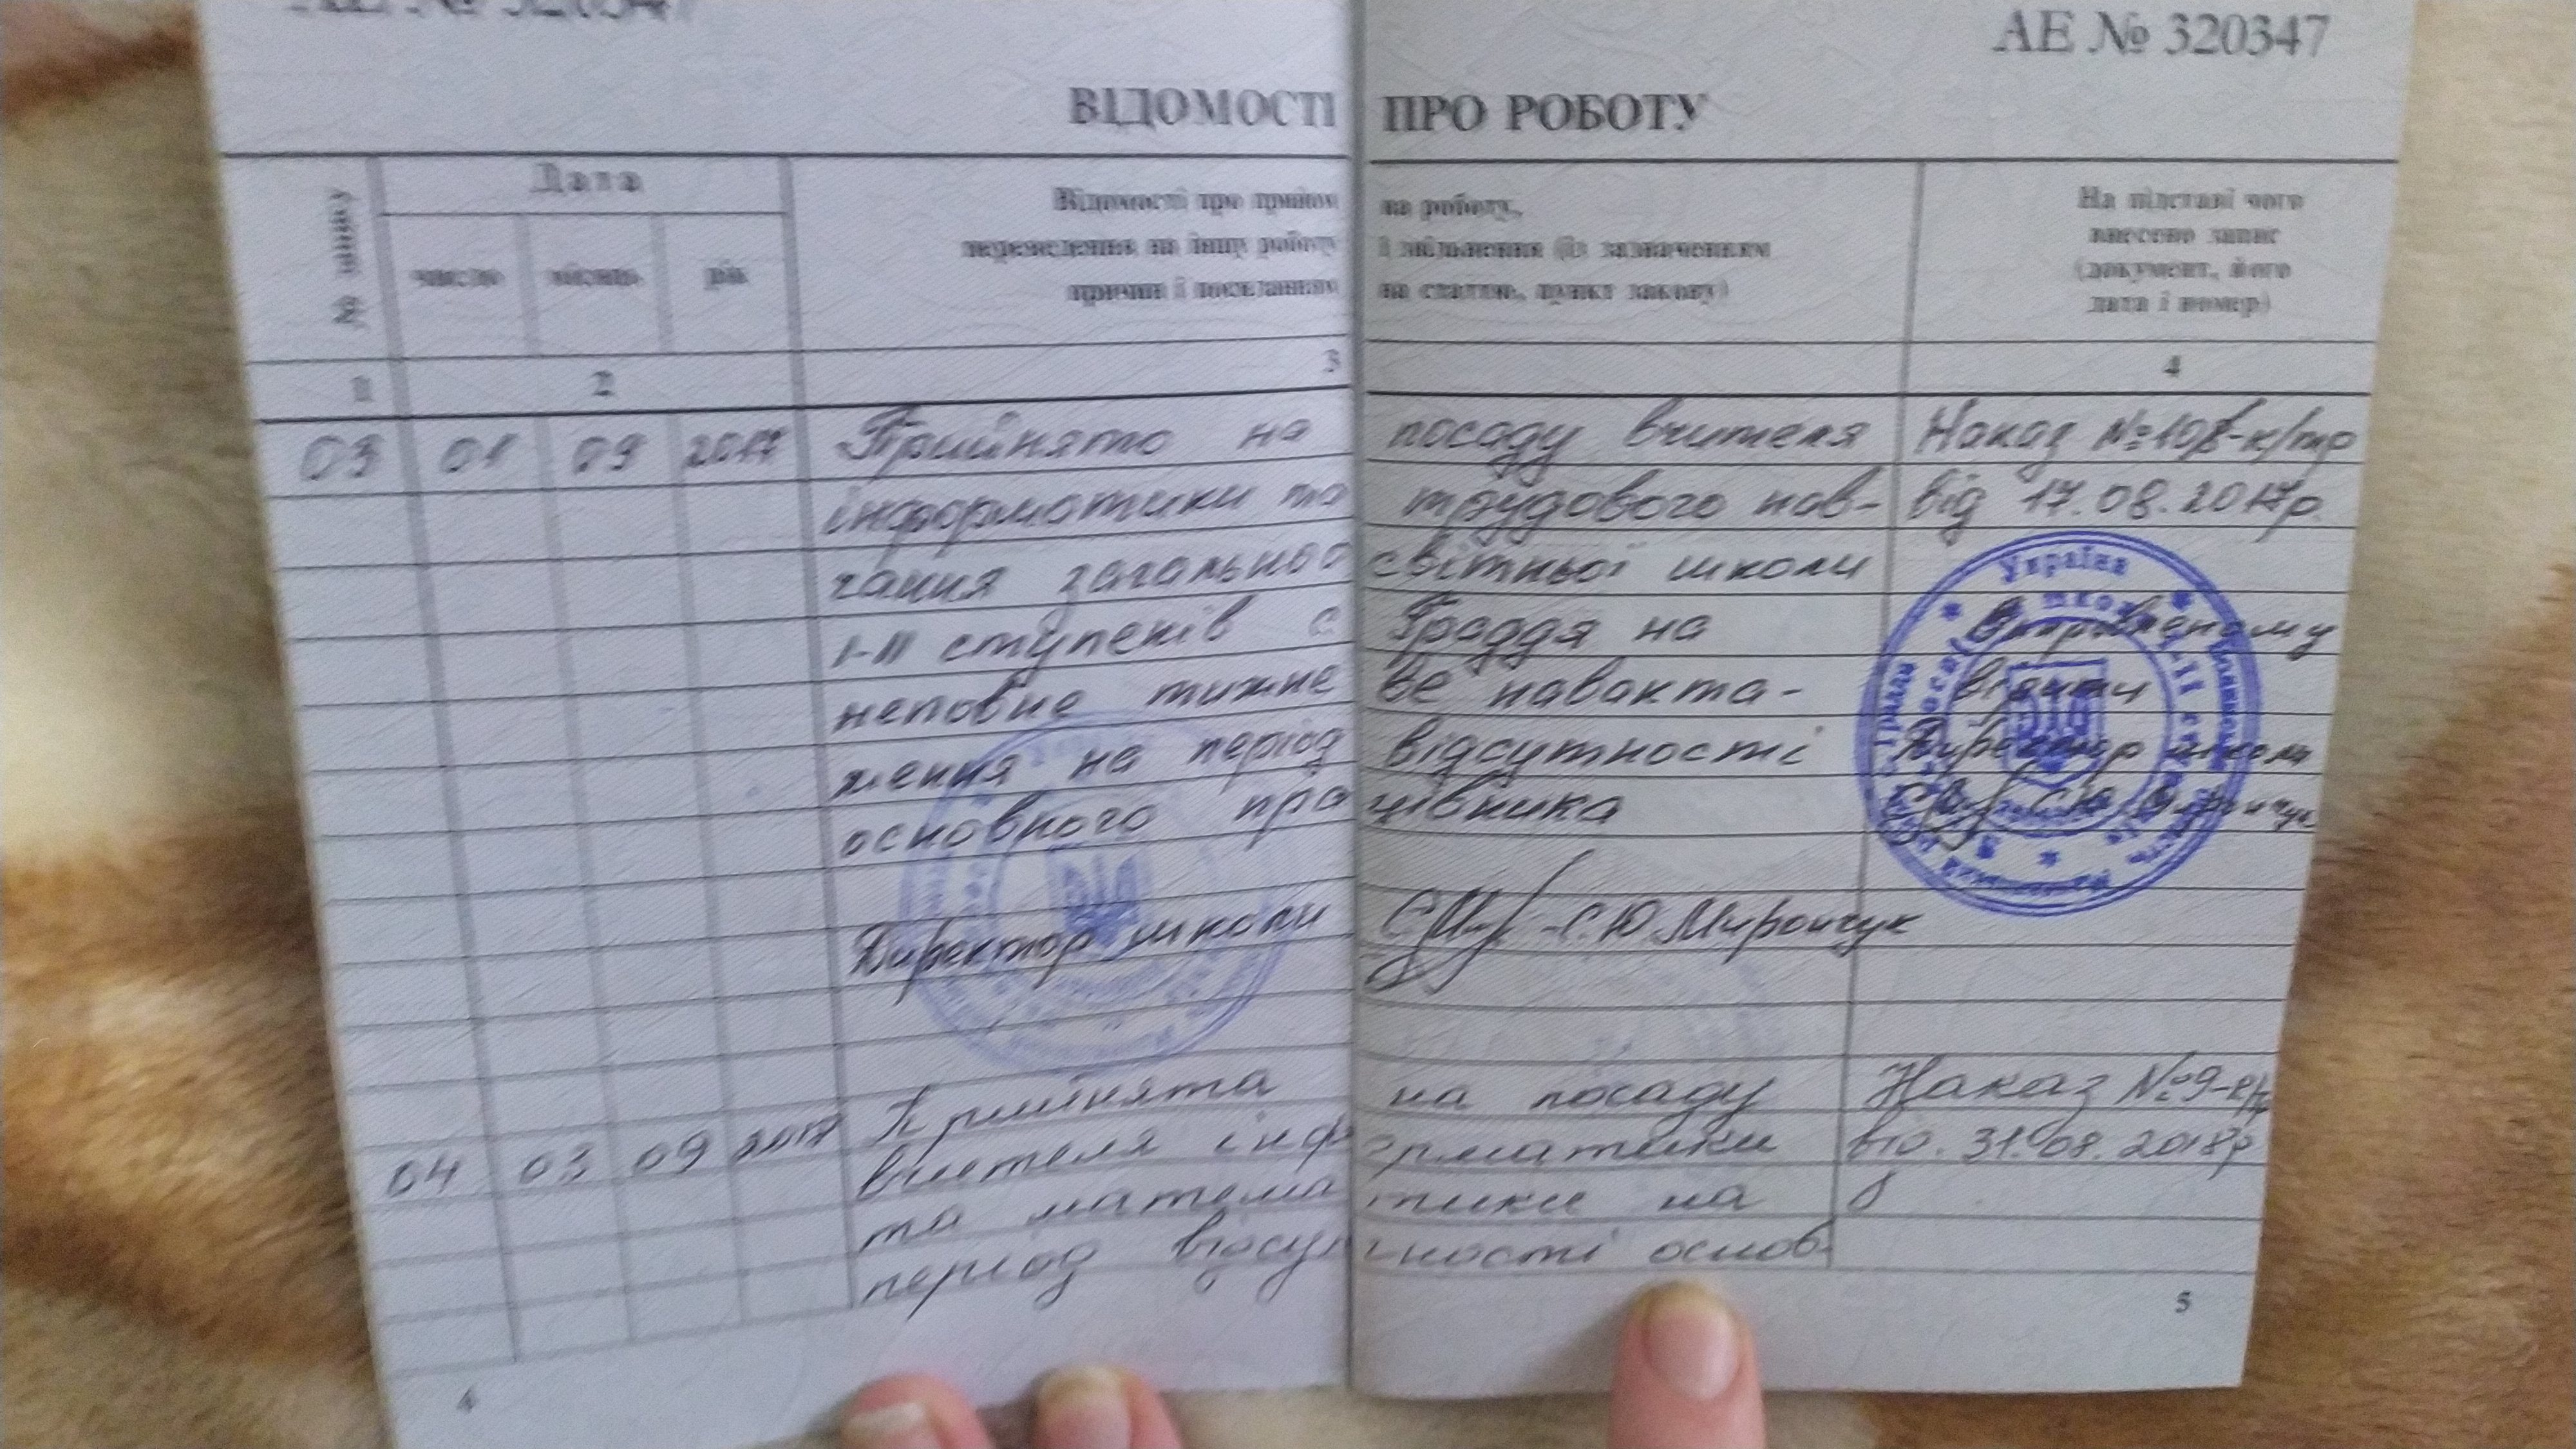 АЕ № 320347
АЕ № 320347
ВІДОМОСТІ ПРО РОБОТУ
№ запису
Дата
число місяць рік
Відомості про прийом на роботу,
переведення на іншу роботу і звільнення (із зазначенням
причин і посиланням на статтю, пункт закону)
На підставі чого
внесено запис
(документ, його
дата і номер)
1 2 3 4
03 01 09 2017 Прийнято на посаду вчителя Наказ №108-к/тр
інформатики та трудового нав- від 17.08.2017р.
чання загальноо світньої школи
І-ІІ ступенів с Граддя на Виправленому
неповне тижне ве наванта- вірити
ження на період відсутності Директор школи
основного пра цівника С.Ю.Мирончук
Директор школи С.Ю.Мирончук
Прийнята на посаду Наказ №9-к/тр
04 03 09 2017 вчителя інф орматики від. 31.08.2018р
та матема тики на
період відсут ності основ-
4
5
Україна